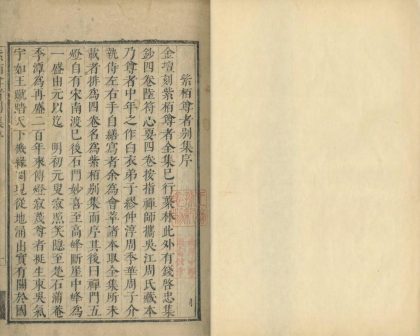 紫栢尊者別集序
金壇刻紫栢尊者全集已行叢林此外有錢啓忠集
鈔四卷陸符心要四卷按指禪師攜吳江周氏藏本
乃尊者中年之作白衣弟子繆仲淳周季華周子介
執侍左右手自繕寫者余為會萃諸本取全集所未
載者排為四卷名為紫栢別集而序其後曰禪門五
燈自有宋南渡已後石門妙喜至高峰斷崖中峰為
一盛由元以迄 明初元叟寂照笑隱至楚石蒲菴
季潭為再盛二百年來傳燈寂蔑尊者挺生東吳氣
宇如王賦踏天下機緣閒見從地涌出實有關於國